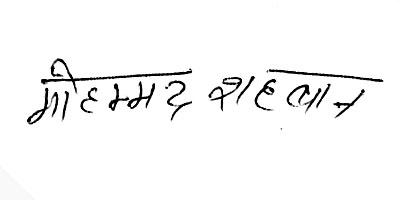 मोहम्मद शहबान